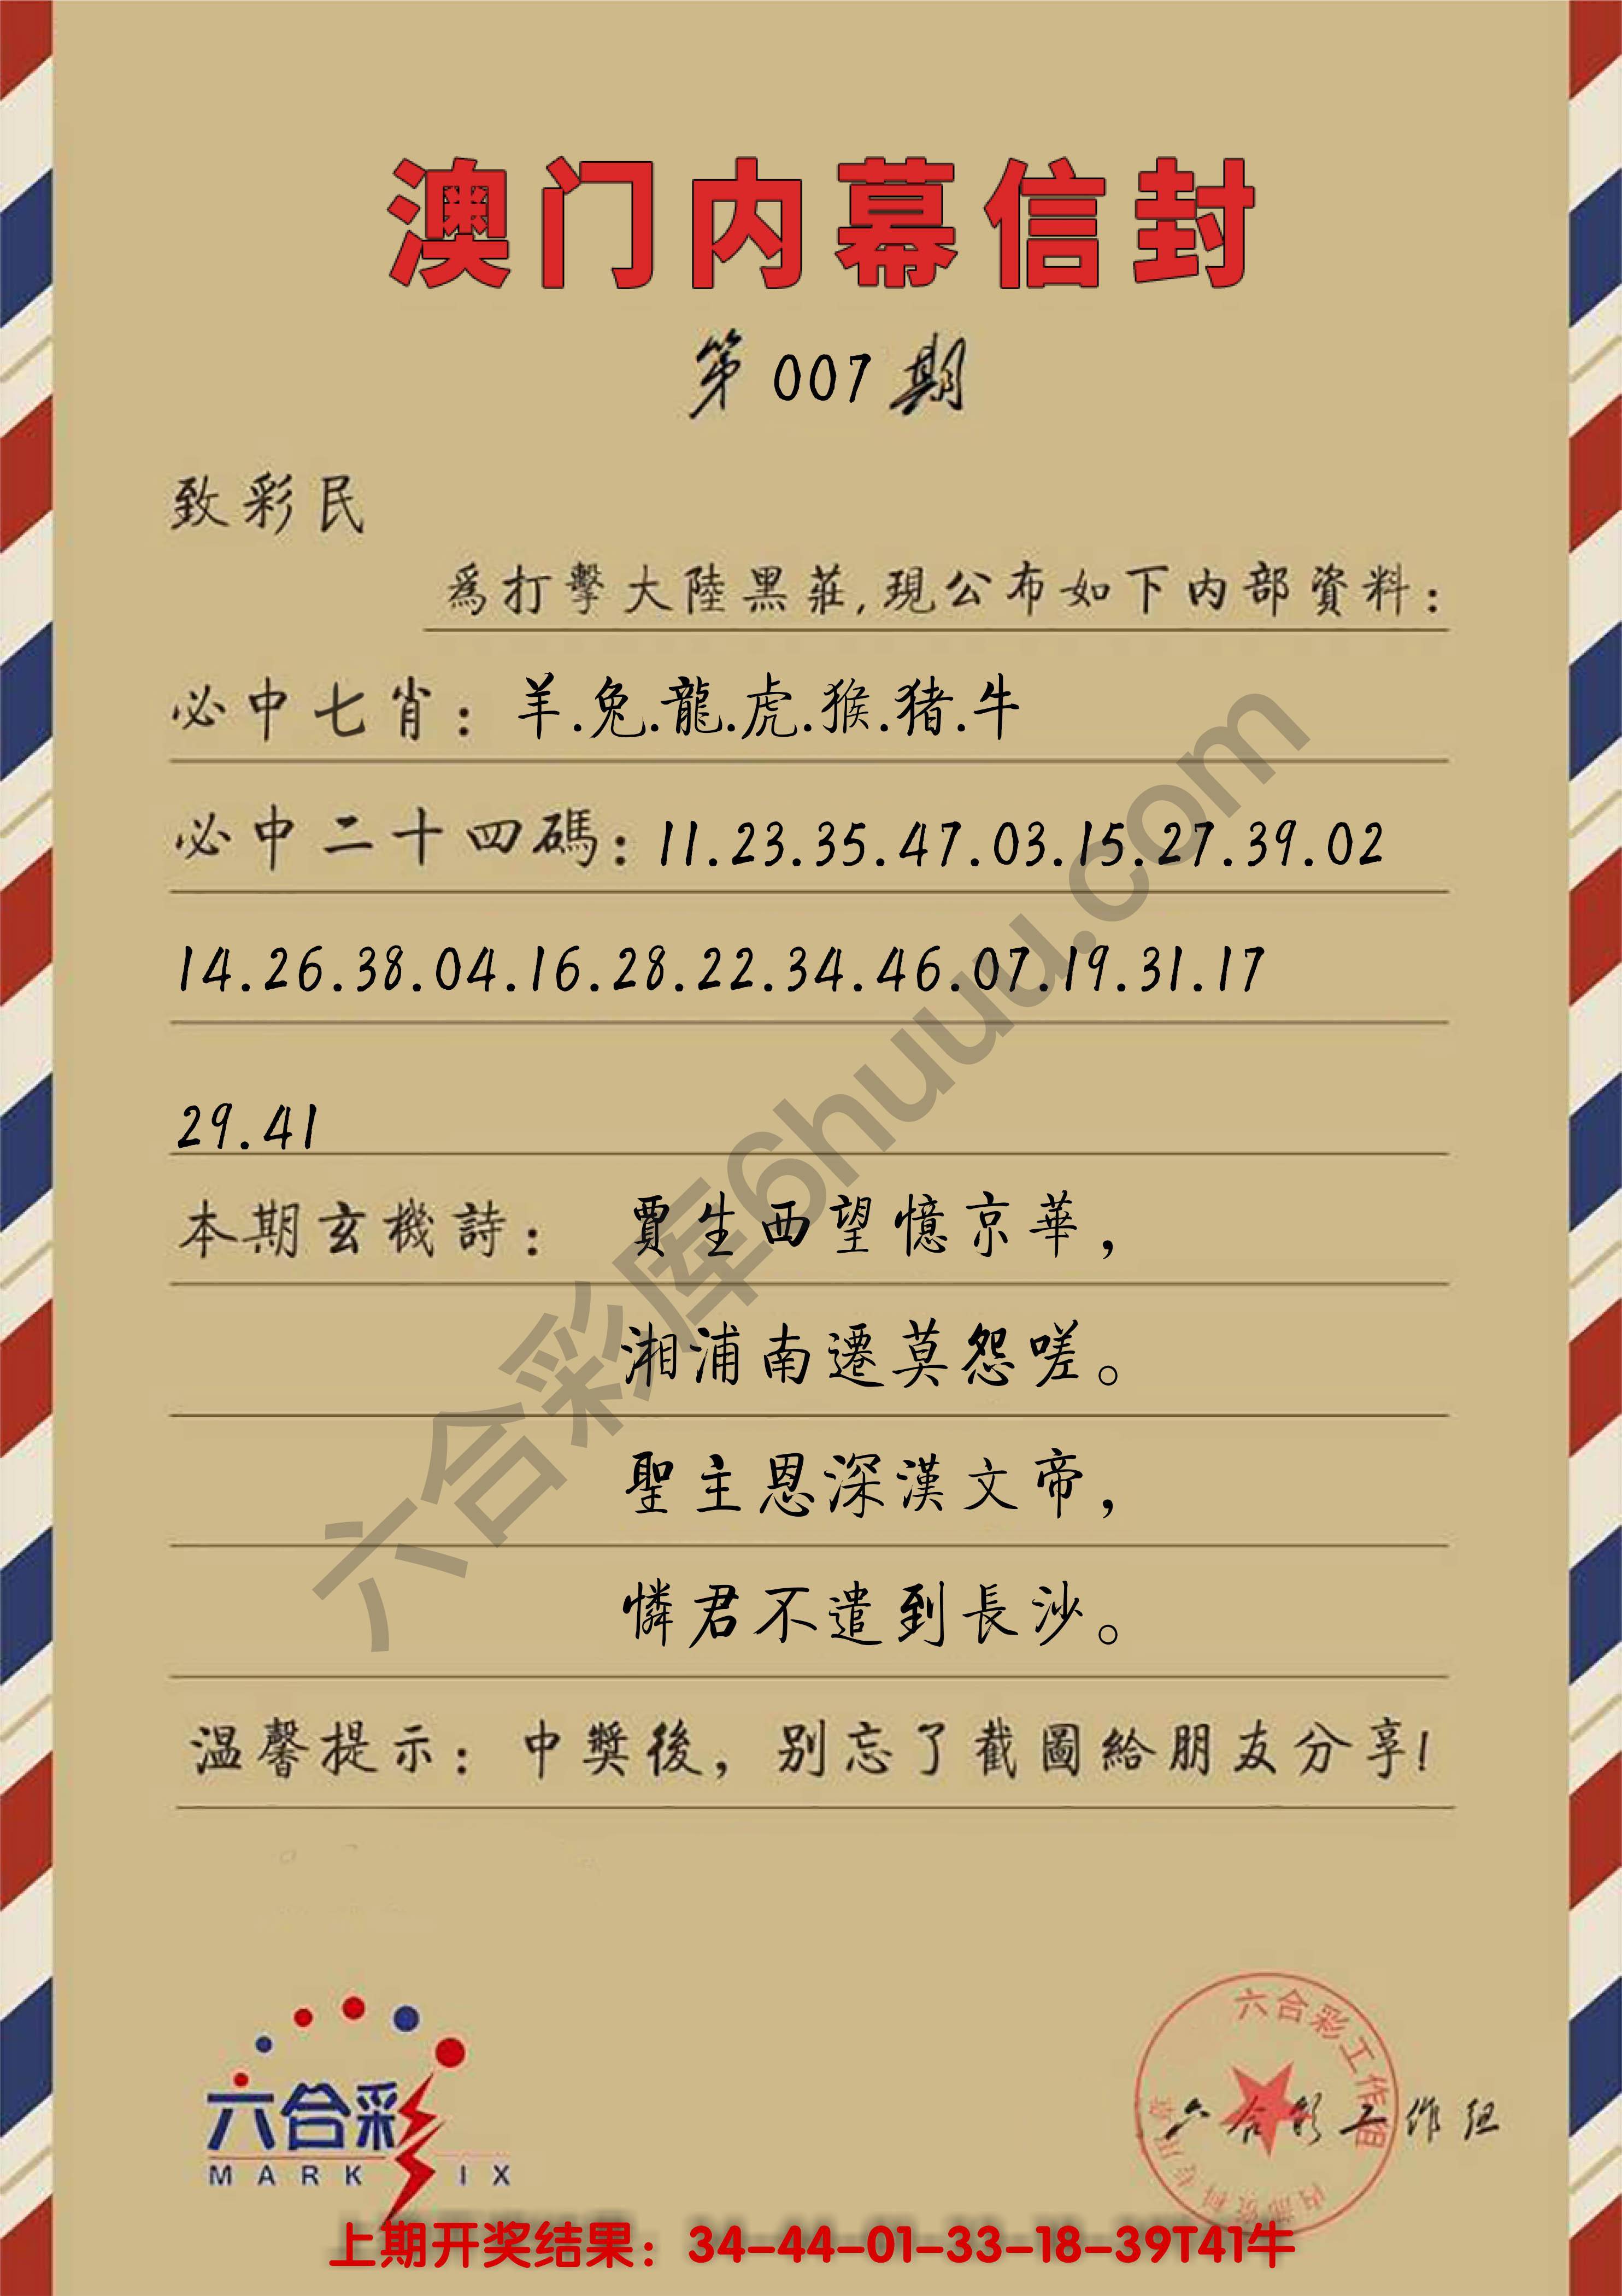 澳门内幕信封
第007期
致彩民
爲打擊大陸黑莊,現公布如下内部資料:
必中七肖: 羊.兔.龍.虎.猴.猪.牛
必中二十四碼: 11.23.35.47.03.15.27.39.02
14.26.38.04.16.28.22.34.46.07.19.31.17
29.41
本期玄機詩: 賈生西望憶京華,
湘浦南遷莫怨嗟。
聖主恩深漢文帝,
憐君不遣到長沙。
温馨提示: 中獎後, 别忘了截圖給朋友分享!
六合彩库6huuu.com
六合彩
MARK IX
六合彩工作组
内部资料专用章
六合彩工作组
上期开奖结果: 34-44-01-33-18-39T41牛